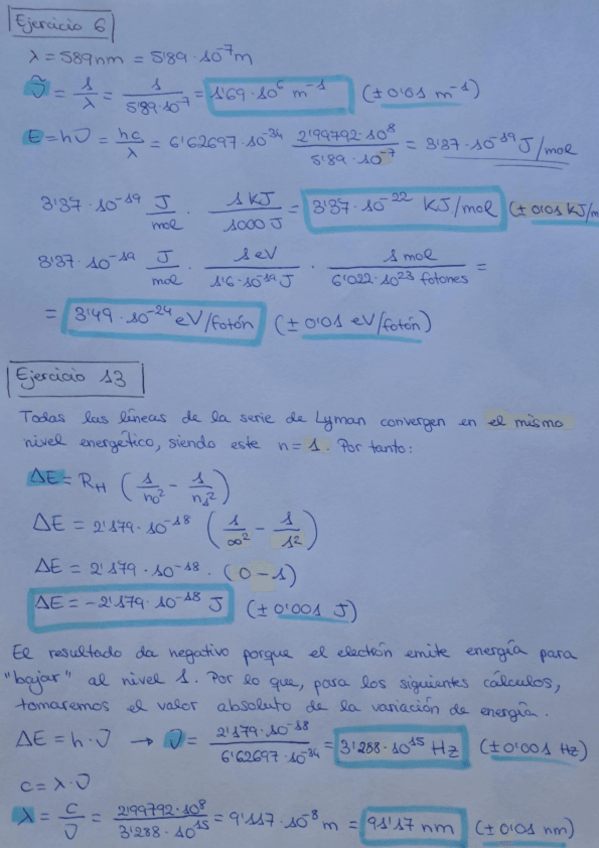 Ejercicio 6
λ = 589nm = 5'89 · 10⁻⁷ m
ν̃ = 1/λ = 1/5'89·10⁻⁷ = 1'69 · 10⁶ m⁻¹ (± 0'01 m⁻¹)
E = hν = hc/λ = 6'62697 · 10⁻³⁴ 2'99792 · 10⁸/5'89 · 10⁻⁷ = 3'37 · 10⁻¹⁹ J/mol
3'37 · 10⁻¹⁹ J/mol · 1 KJ/1000 J = 3'37 · 10⁻²² KJ/mol (± 0'01 KJ/m
3'37 · 10⁻¹⁹ J/mol · 1 eV/1'6 · 10⁻¹⁹ J · 1 mol/6'022 · 10²³ fotones =
= 3'49 · 10⁻²⁴ eV/fotón (± 0'01 eV/fotón)
Ejercicio 13
Todas las líneas de la serie de Lyman convergen en el mismo
nivel energético, siendo este n = 1. Por tanto:
ΔE = R_H (1/n₀² - 1/n₁²)
ΔE = 2'179 · 10⁻¹⁸ (1/∞² - 1/1²)
ΔE = 2'179 · 10⁻¹⁸ · (0 - 1)
ΔE = -2'179 · 10⁻¹⁸ J (± 0'001 J)
El resultado da negativo porque el electrón emite energía para
"bajar" al nivel 1. Por lo que, para los siguientes cálculos,
tomaremos el valor absoluto de la variación de energía.
ΔE = h · ν → ν = 2'179 · 10⁻¹⁸/6'62697 · 10⁻³⁴ = 3'288 · 10¹⁵ Hz (± 0'001 Hz)
c = λ · ν
λ = c/ν = 2'99792 · 10⁸/3'288 · 10¹⁵ = 9'117 · 10⁻⁸ m = 91'17 nm (± 0'01 nm)